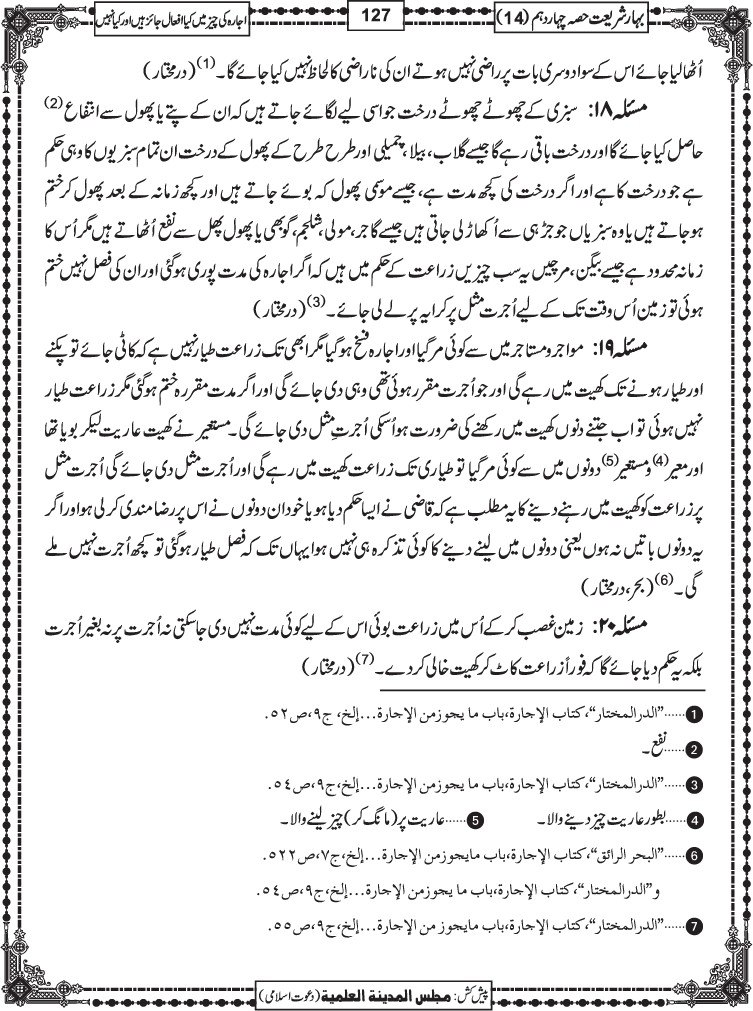 بہارِ شریعت حصہ چہاردہم (14)
127
اجارہ کی چیز میں کیا افعال جائز ہیں اور کیا نہیں
اُٹھالیا جائے اس کے سوا دوسری بات پر راضی نہیں ہوتے ان کی ناراضی کا لحاظ نہیں کیا جائے گا۔(1) (درمختار)
مسئلہ ۱۸: سبزی کے چھوٹے چھوٹے درخت جو اسی لیے لگائے جاتے ہیں کہ ان کے پتے یا پھول سے انتفاع(2)
حاصل کیا جائے گا اور درخت باقی رہے گا جیسے گلاب، بیلا، چمیلی اور طرح طرح کے پھول کے درخت ان تمام سبزیوں کا وہی حکم
ہے جو درخت کا ہے اور اگر درخت کی کچھ مدت ہے، جیسے موسمی پھول کہ بوئے جاتے ہیں اور کچھ زمانہ کے بعد پھول کر ختم
ہوجاتے ہیں یا وہ سبزیاں جو جڑ ہی سے اُکھاڑ لی جاتی ہیں جیسے گاجر، مولی، شلجم، گوبھی یا پھول پھل سے نفع اُٹھاتے ہیں مگر اُس کا
زمانہ محدود ہے جیسے بیگن، مرچیں یہ سب چیزیں زراعت کے حکم میں ہیں کہ اگر اجارہ کی مدت پوری ہوگئی اور ان کی فصل نہیں ختم
ہوئی تو زمین اُس وقت تک کے لیے اُجرت مثل پر کرایہ پر لے لی جائے۔(3) (درمختار)
مسئلہ ۱۹: مواجر و مستاجر میں سے کوئی مر گیا اور اجارہ فسخ ہوگیا مگر ابھی تک زراعت طیار نہیں ہے کہ کاٹی جائے تو پکنے
اور طیار ہونے تک کھیت میں رہے گی اور جو اُجرت مقرر ہوئی تھی وہی دی جائے گی اور اگر مدت مقررہ ختم ہوگئی مگر زراعت طیار
نہیں ہوئی تو اب جتنے دنوں کھیت میں رکھنے کی ضرورت ہو اُسکی اُجرتِ مثل دی جائے گی۔ مستعیر نے کھیت عاریت لیکر بویا تھا
اور معیر(4) و مستعیر(5) دونوں میں سے کوئی مر گیا تو طیاری تک زراعت کھیت میں رہے گی اور اُجرت مثل دی جائے گی اُجرت مثل
پر زراعت کو کھیت میں رہنے دینے کا یہ مطلب ہے کہ قاضی نے ایسا حکم دیا ہو یا خود ان دونوں نے اس پر رضامندی کر لی ہو اور اگر
یہ دونوں باتیں نہ ہوں یعنی دونوں میں لینے دینے کا کوئی تذکرہ ہی نہیں ہوا یہاں تک کہ فصل طیار ہوگئی تو کچھ اُجرت نہیں ملے
گی۔(6) (بحر، درمختار)
مسئلہ ۲۰: زمین غصب کر کے اُس میں زراعت بوئی اس کے لیے کوئی مدت نہیں دی جاسکتی نہ اُجرت پر نہ بغیر اُجرت
بلکہ یہ حکم دیا جائے گا کہ فوراً زراعت کاٹ کر کھیت خالی کردے۔(7) (درمختار)
1 ......”الدرالمختار“، کتاب الإجارة، باب ما يجوز من الإجارة...إلخ، ج٩، ص٥٢.
2 ......نفع۔
3 ......”الدرالمختار“، کتاب الإجارة، باب ما يجوز من الإجارة...إلخ، ج٩، ص٥٤.
4 ......بطورِ عاریت چیز دینے والا۔ 5 ......عاریت پر (مانگ کر) چیز لینے والا۔
6 ......”البحر الرائق“، کتاب الإجارة، باب ما يجوز من الإجارة...إلخ، ج٧، ص٥٢٢.
و”الدرالمختار“، کتاب الإجارة، باب ما يجوز من الإجارة...إلخ، ج٩، ص٥٤.
7 ......”الدرالمختار“، کتاب الإجارة، باب ما يجوز من الإجارة...إلخ، ج٩، ص٥٥.
پیش کش: مجلس المدینة العلمیة (دعوت اسلامی)